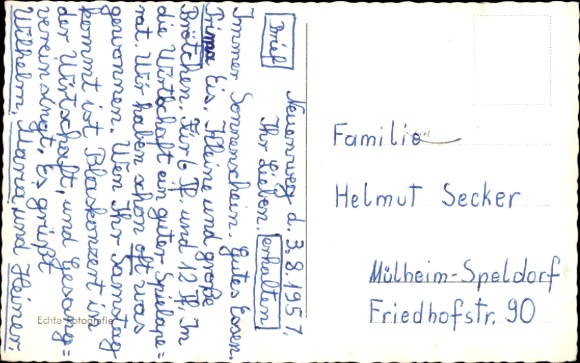 Neuenweg d. 3.8.1957.
Brief
Ihr Lieben. erhalten
Immer Sonnenschein. Gutes Essen.
Prima Eis. Kleine und große
Brötchen. Für 6 Pf. und 12 Pf. In
die Wirtschaft ein guter Spielape=
rat. Wir haben schon oft was
gewonnen. Wen Ihr Samstag
kommt ist Blaskonzert in
der Wirtschaft, und Gesang=
verein singt. Es grüßt
Wilhelm, Maria und Heiner.
Familie
Helmut Secker
Mülheim-Speldorf
Friedhofstr. 90
Echte Fotografie